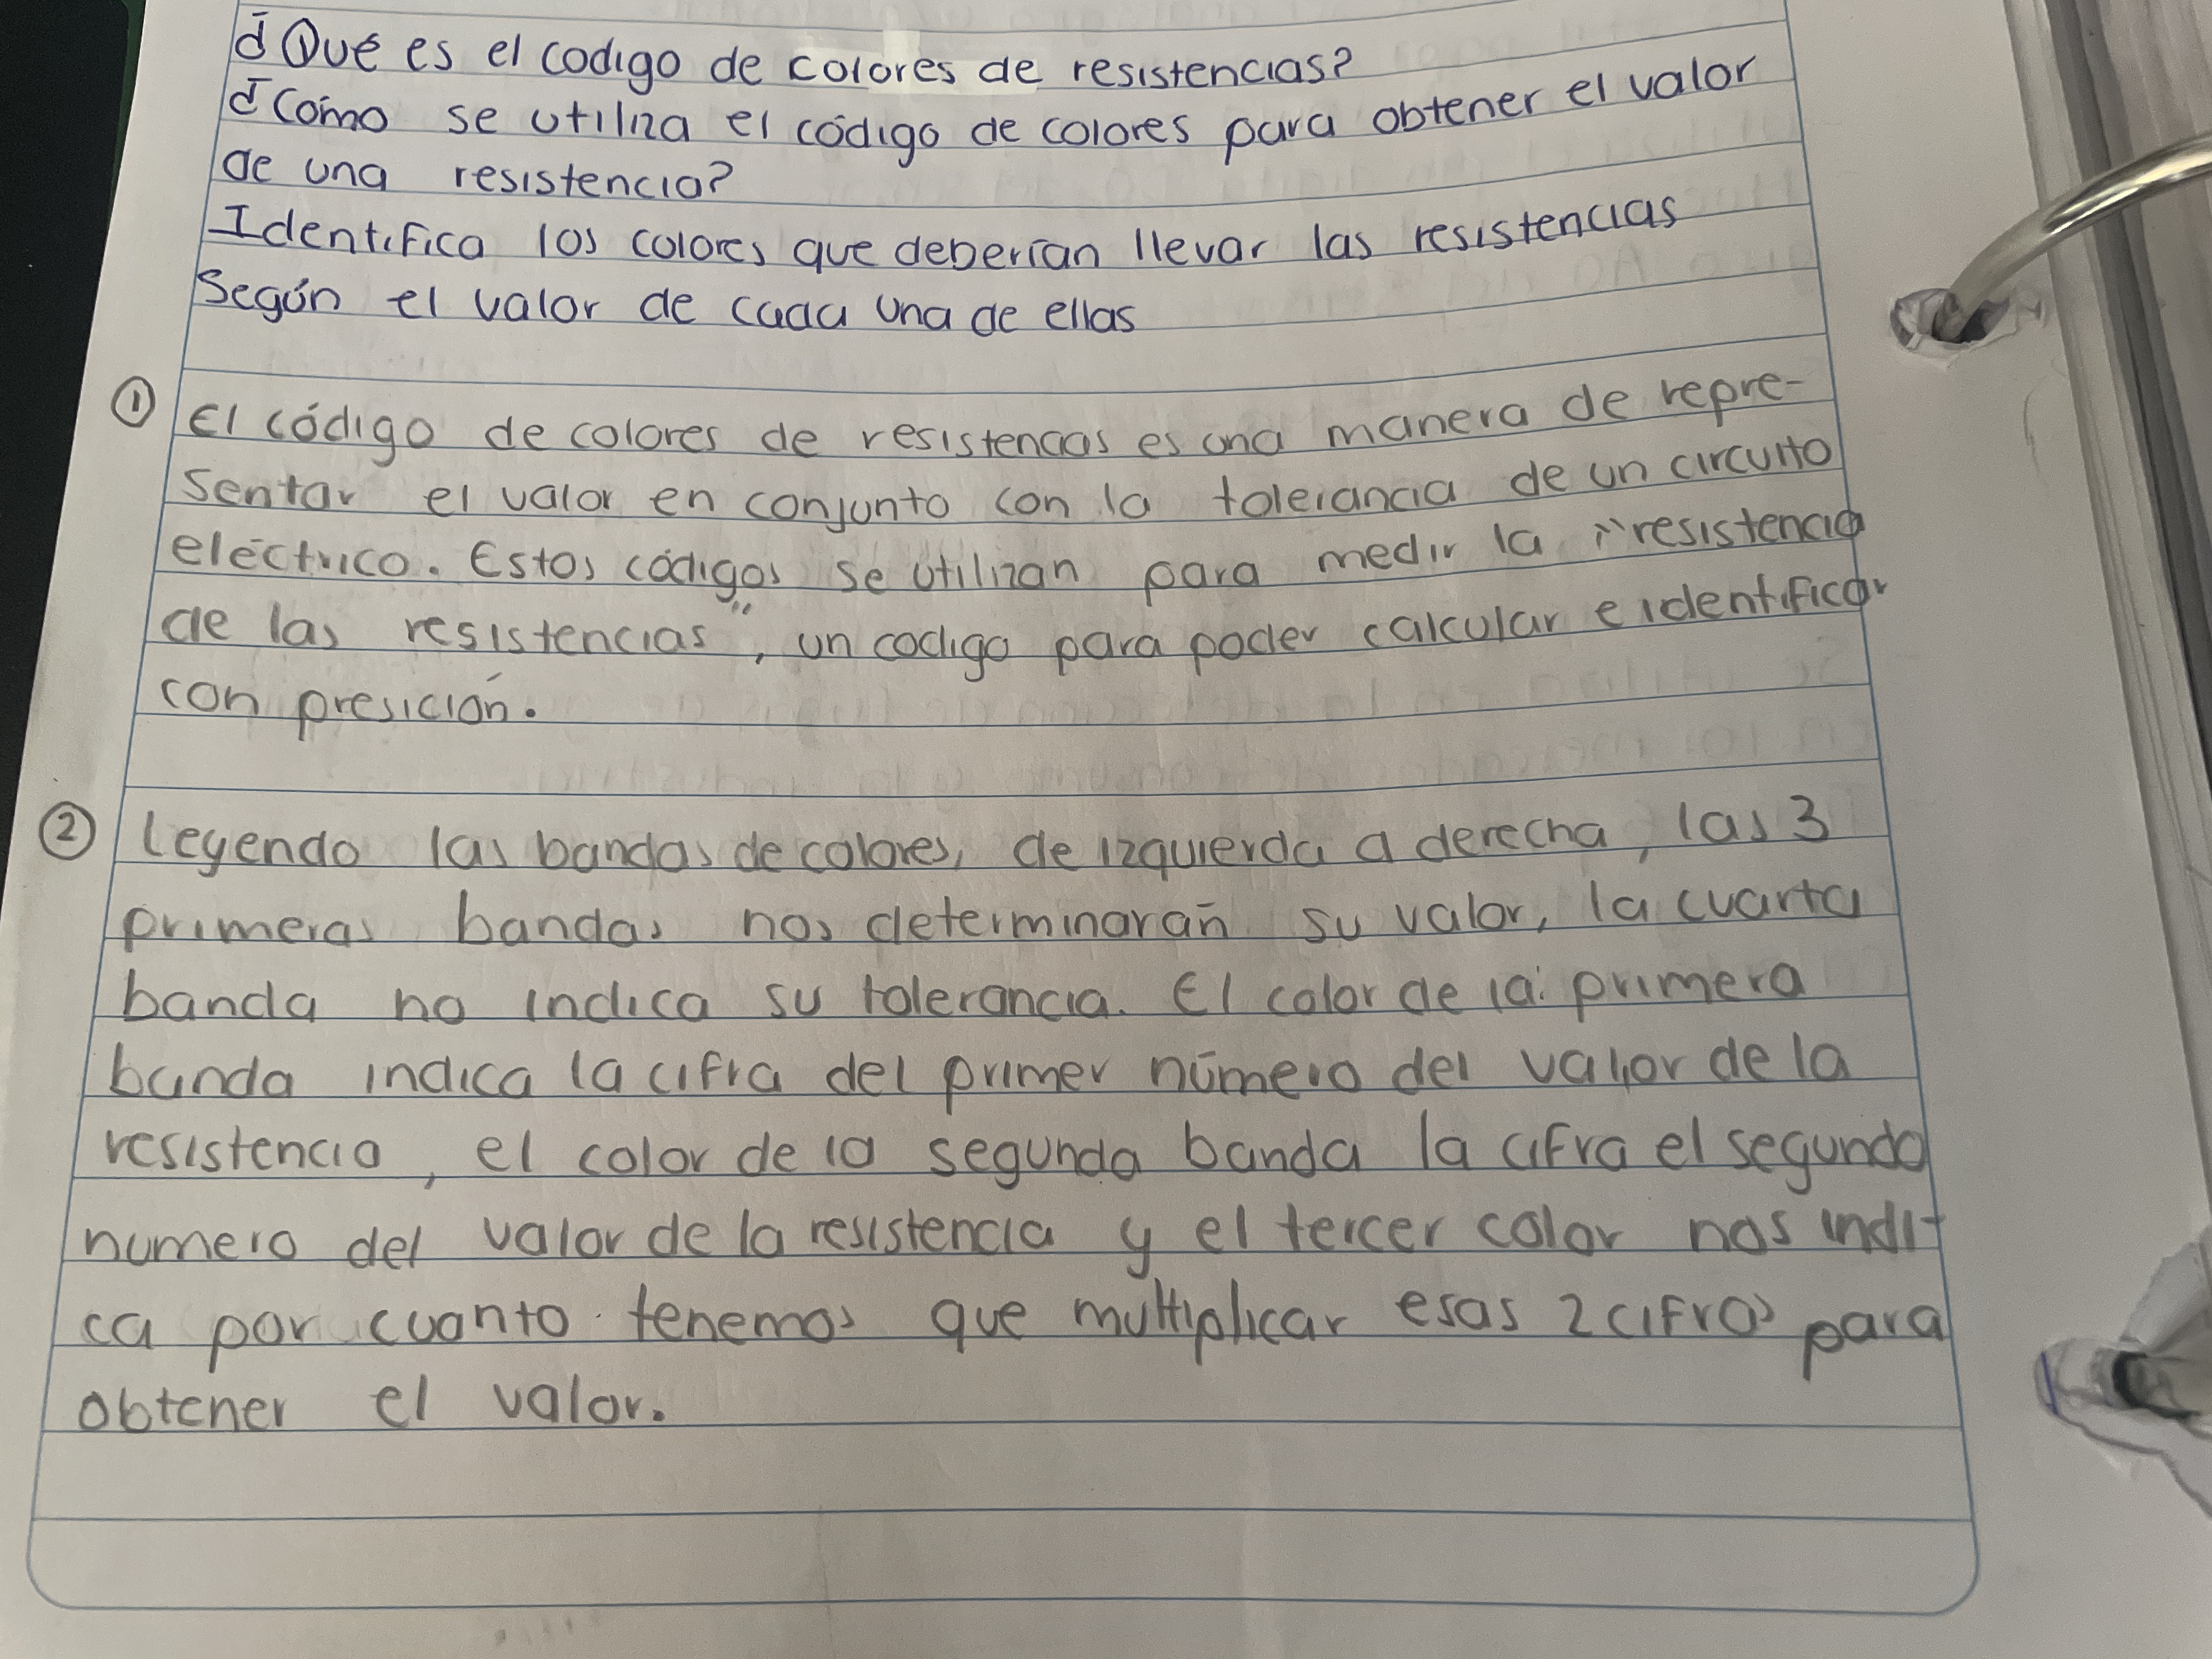 ¿Qué es el codigo de colores de resistencias?
¿Cómo se utiliza el código de colores para obtener el valor
de una resistencia?
Identifica los colores que deberían llevar las resistencias
Según el valor de cada una de ellas
① El código de colores de resistencias es una manera de repre-
sentar el valor en conjunto con la tolerancia de un circuito
eléctrico. Estos códigos se utilizan para medir la "resistencia
de las resistencias", un codigo para poder calcular e identificar
con presición.
② Leyendo las bandas de colores, de izquierda a derecha, las 3
primeras bandas nos determinarán su valor, la cuarta
banda no indica su tolerancia. El color de la primera
banda indica la cifra del primer número del valor de la
resistencia, el color de la segunda banda la cifra el segundo
numero del valor de la resistencia y el tercer color nos indi-
ca por cuanto tenemos que multiplicar esas 2 cifras para
obtener el valor.